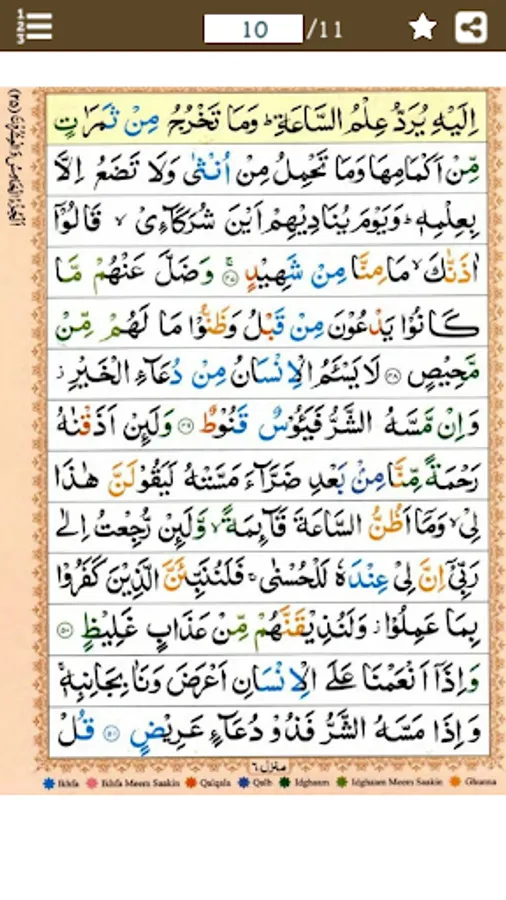 10 /11
اِلَيْهِ يُرَدُّ عِلْمُ السَّاعَةِ ؕ وَمَا تَخْرُجُ مِنْ ثَمَرٰتٍ
مِّنْ اَكْمَامِهَا وَمَا تَحْمِلُ مِنْ اُنْثٰى وَلَا تَضَعُ اِلَّا
بِعِلْمِهٖ ؕ وَيَوْمَ يُنَادِيْهِمْ اَيْنَ شُرَكَآءِىْ ۙ قَالُوْۤا
اٰذَنّٰكَ ۙ مَا مِنَّا مِنْ شَهِيْدٍ ۚ ﴿۴۷﴾ وَضَلَّ عَنْهُمْ مَّا
كَانُوْا يَدْعُوْنَ مِنْ قَبْلُ وَظَنُّوْا مَا لَهُمْ مِّنْ
مَّحِيْصٍ ﴿۴۸﴾ لَا يَسْـَٔمُ الْاِنْسَانُ مِنْ دُعَآءِ الْخَيْرِ ز
وَاِنْ مَّسَّهُ الشَّرُّ فَيَـُٔوْسٌ قَنُوْطٌ ﴿۴۹﴾ وَلَئِنْ اَذَقْنٰهُ
رَحْمَةً مِّنَّا مِنْۢ بَعْدِ ضَرَّآءَ مَسَّتْهُ لَيَقُوْلَنَّ هٰذَا
لِىْ ۙ وَمَاۤ اَظُنُّ السَّاعَةَ قَآئِمَةً ۙ وَّلَئِنْ رُّجِعْتُ اِلٰى
رَبِّىْۤ اِنَّ لِىْ عِنْدَهٗ لَلْحُسْنٰى ۚ فَلَنُنَبِّئَنَّ الَّذِيْنَ كَفَرُوْا
بِمَا عَمِلُوْا ز وَلَنُذِيْقَنَّهُمْ مِّنْ عَذَابٍ غَلِيْظٍ ﴿۵۰﴾
وَاِذَاۤ اَنْعَمْنَا عَلَى الْاِنْسَانِ اَعْرَضَ وَنَاٰ بِجَانِبِهٖ ۚ
وَاِذَا مَسَّهُ الشَّرُّ فَذُوْ دُعَآءٍ عَرِيْضٍ ﴿۵۱﴾ قُلْ
منزل ٦
Ikhfa Ikhfa Meem Saakin Qalqala Qalb Idghaam Idghaam Meem Saakin Ghunna